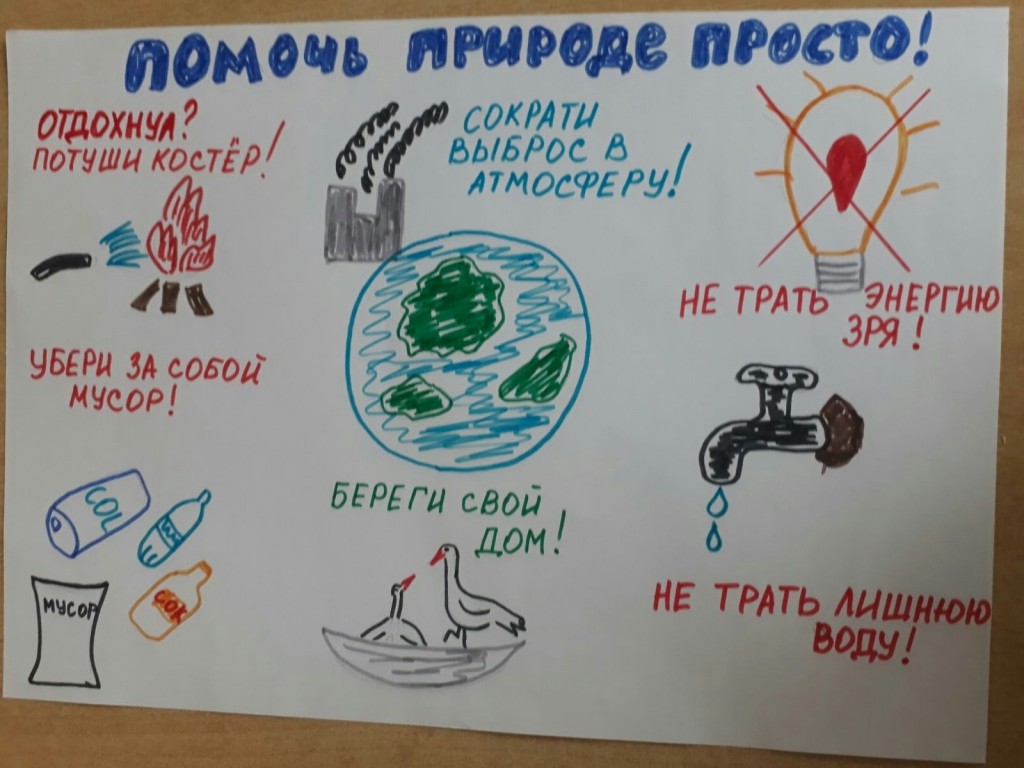 ПОМОЧЬ ПРИРОДЕ ПРОСТО!
ОТДОХНУЛ?
ПОТУШИ КОСТЁР!
СОКРАТИ
ВЫБРОС В
АТМОСФЕРУ!
НЕ ТРАТЬ ЭНЕРГИЮ
ЗРЯ!
УБЕРИ ЗА СОБОЙ
МУСОР!
БЕРЕГИ СВОЙ
ДОМ!
COL
СОК
МУСОР
НЕ ТРАТЬ ЛИШНЮЮ
ВОДУ!